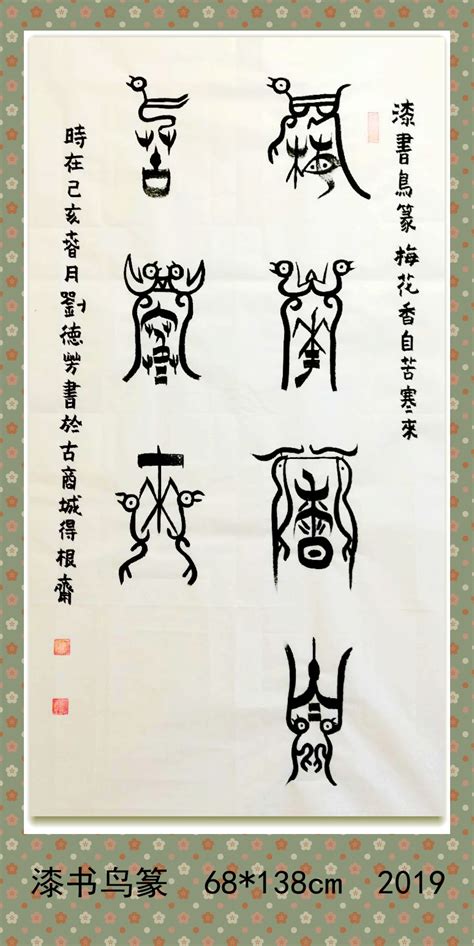 漆書鳥篆 梅花香自苦寒來
梅花香自
苦寒來
時在己亥春月劉德芳書於古商城得根齋
漆书鸟篆 68*138cm 2019